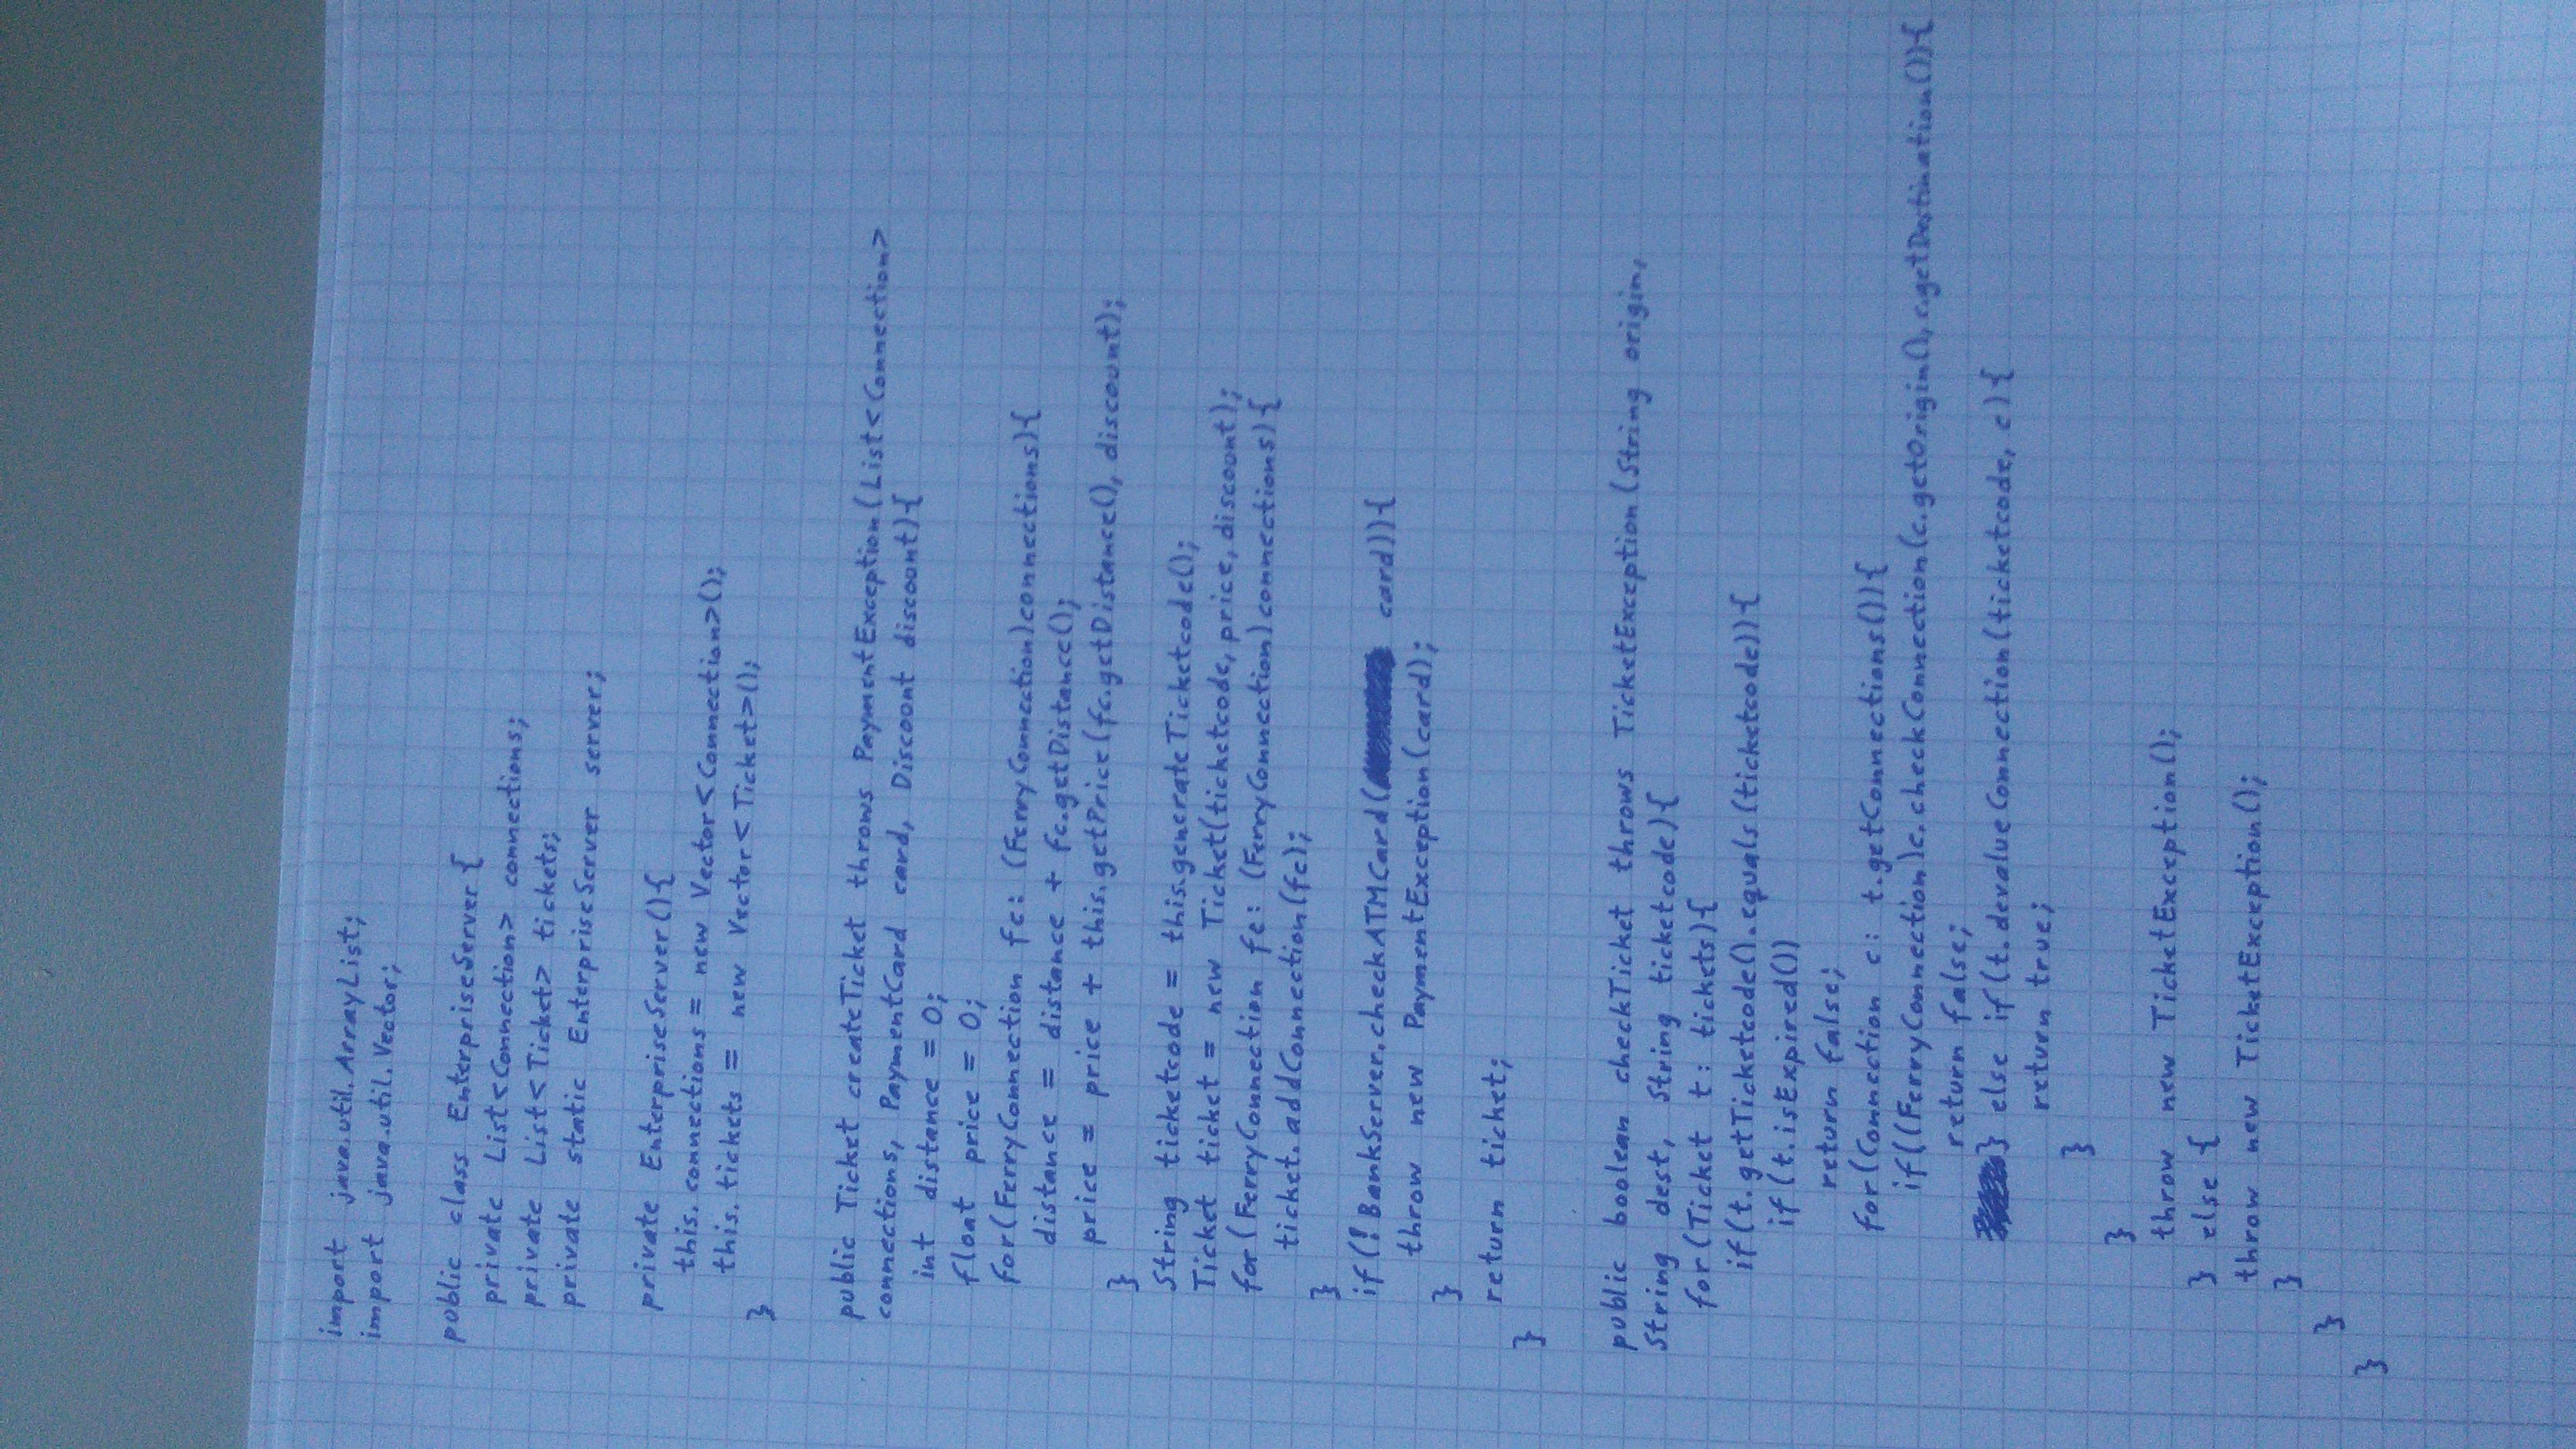 import java.util.ArrayList;
import java.util.Vector;
public class EnterpriseServer {
private List<Connection> connections;
private List<Ticket> tickets;
private static EnterpriseServer server;
private EnterpriseServer(){
this.connections = new Vector<Connection>();
this.tickets = new Vector<Ticket>();
}
public Ticket createTicket throws PaymentException(List<Connection>
connections, PaymentCard card, Discount discount){
int distance = 0;
float price = 0;
for(FerryConnection fc: (FerryConnection)connections){
distance = distance + fc.getDistance();
price = price + this.getPrice(fc.getDistance(), discount);
}
String ticketcode = this.generateTicketcode();
Ticket ticket = new Ticket(ticketcode, price, discount);
for(FerryConnection fc: (FerryConnection)connections){
ticket.addConnection(fc);
}
if(!BankServer.checkATMCard( card)){
throw new PaymentException(card);
}
return ticket;
}
public boolean checkTicket throws TicketException(String origin,
String dest, String ticketcode){
for(Ticket t: tickets){
if(t.getTicketcode().equals(ticketcode)){
if(t.isExpired())
return false;
for(Connection c: t.getConnections()){
if((FerryConnection)c.checkConnection(c.getOrigin(), c.getDestination()){
return false;
} else if(t.devalueConnection(ticketcode, c){
return true;
}
}
throw new TicketException();
} else {
throw new TicketException();
}
}
}